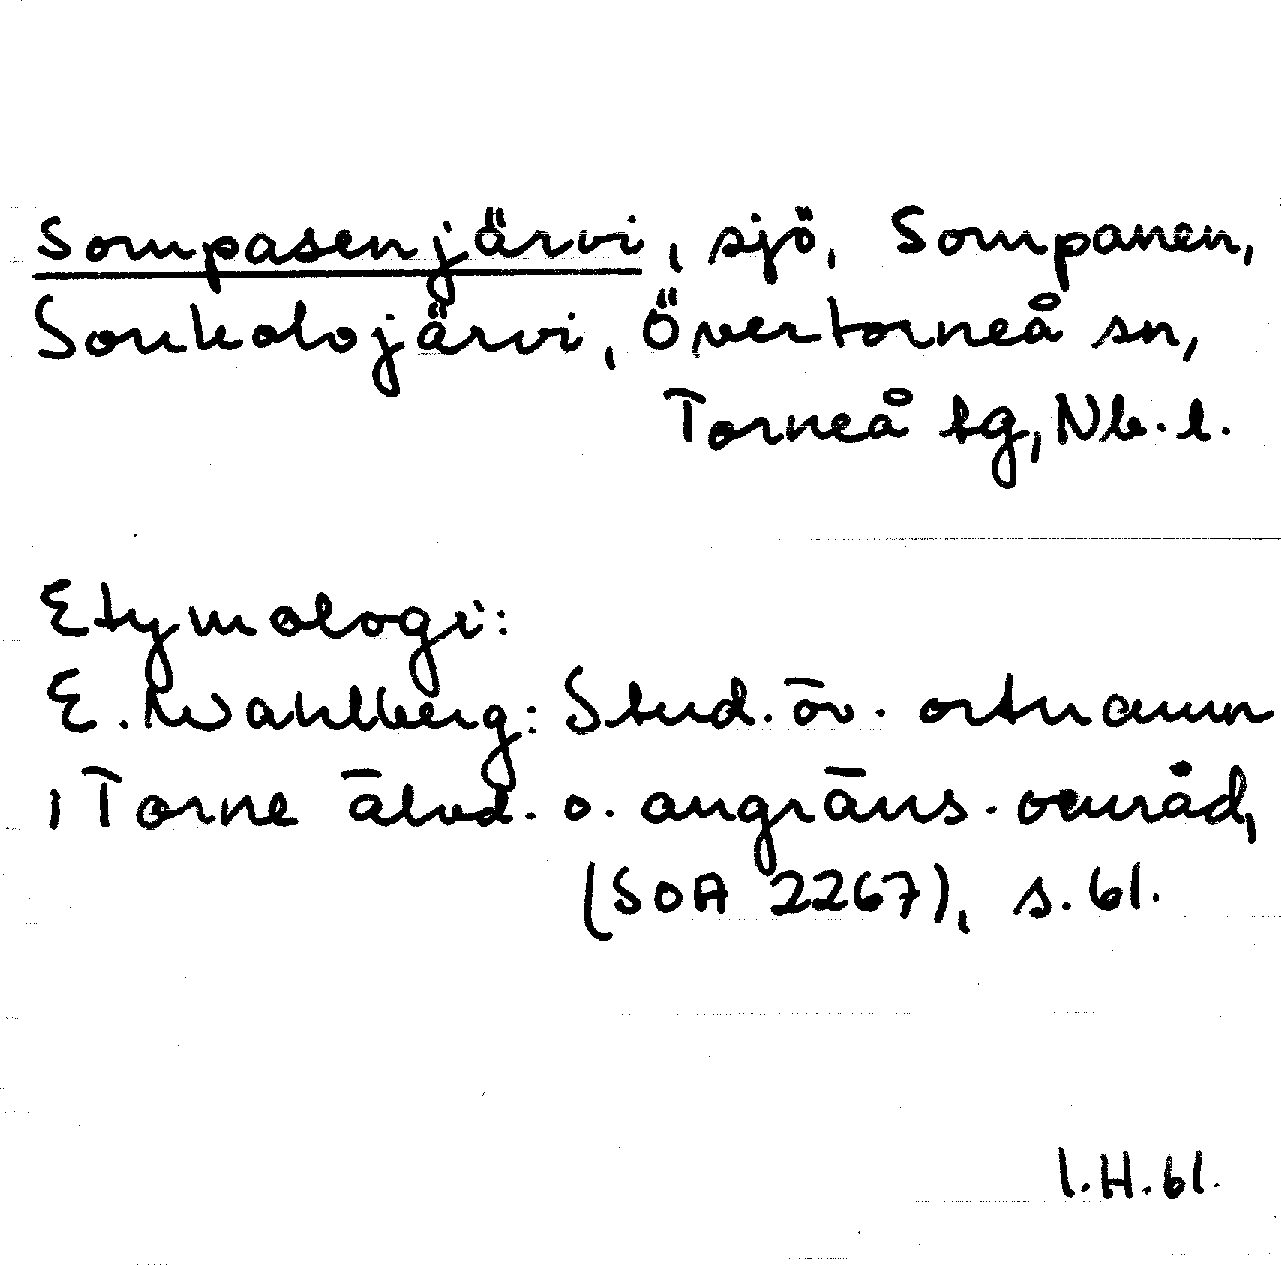 Sompasenjärvi, sjö, Sompanen,
Soukolojärvi, Övertorneå sn,
Torneå tg, Nb. l.
Etymologi:
E. Wahlberg: Stud. öv. ortnamn
i Torne älvd. o. angräns. område,
(SOA 2267), s. 61.
I.H.61.